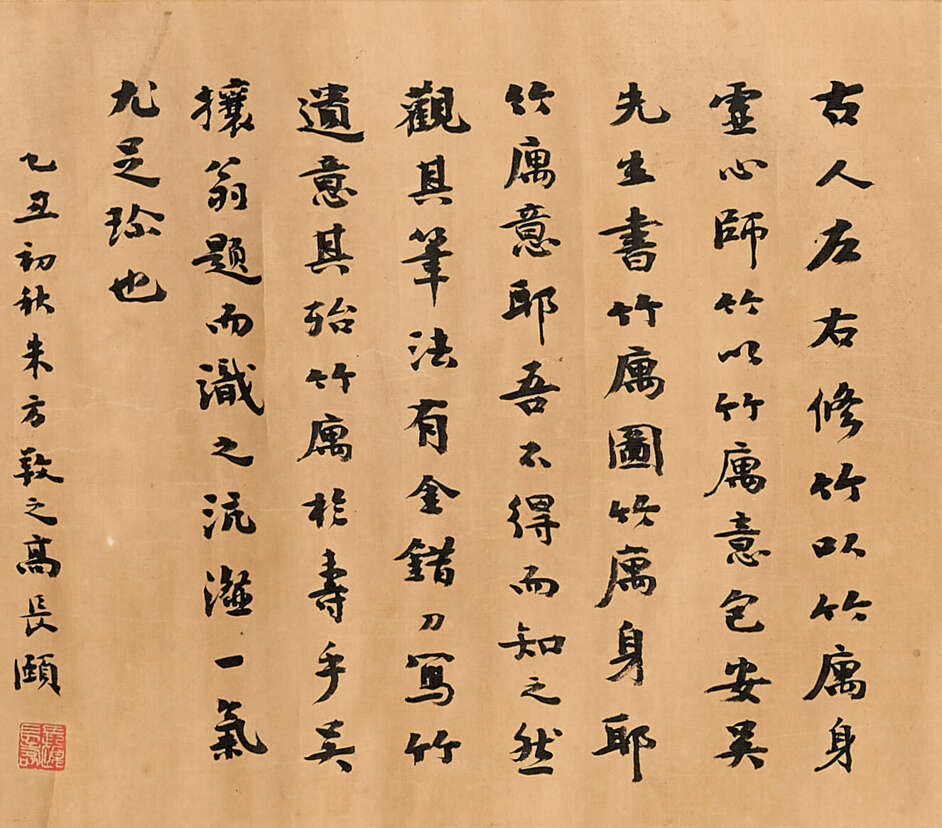 古人左右修竹以竹庽身
霊心師竹以竹庽意包安吴
先生書竹庽圖竹庽身耶
竹庽意耶吾不得而知之然
觀其筆法有金錯刀寫竹
遺意其殆竹庽於壽乎吴
攘翁題而識之沆瀣一氣
尤足珎也
乙丑初秋朱方敦之高長頤